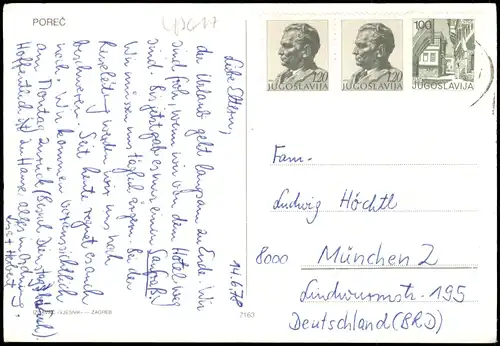 POREČ
14.6.78
Liebe Eltern,
der Urlaub geht langsam zu Ende. Wir
sind froh, wenn wir von dem Hotel weg
sind. Bis jetzt gab es nur einen Saufraß.
Wir müssen uns täglich ärgern. Bei der
Reiseleitung werden wir uns noch
beschweren. Seit heute regnet es auch
noch. Wir kommen voraussichtlich
am Montag zurück (Besuch Dienstag
Hoffentlich ist zu Hause alles in Ordnung.
Herbert
1,20
JUGOSLAVIJA
1,20
JUGOSLAVIJA
1.00
JUGOSLAVIJA
Fam.
Ludwig Höchtl
8000 München 2
Lindwurmstr. 195
Deutschland (BRD)
»VJESNIK« — ZAGREB
7163